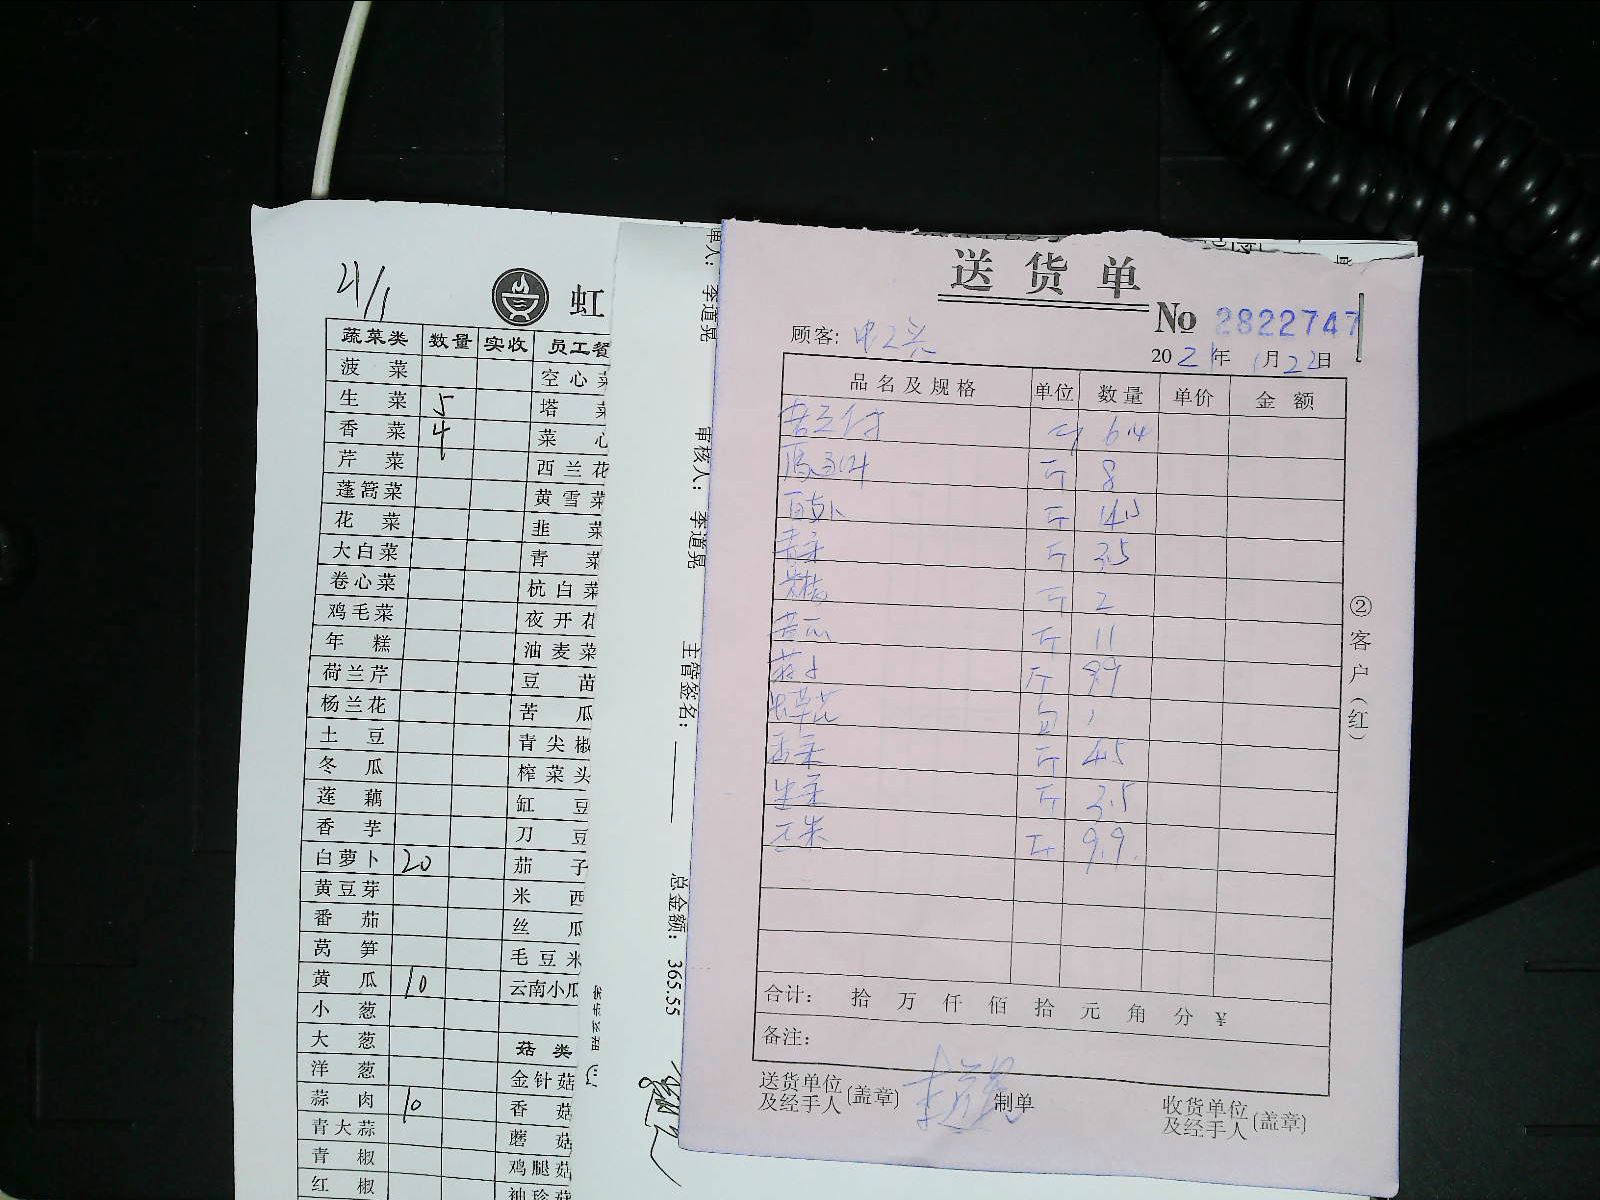 21/1
虹
蔬菜类 数量 实收 员工餐
菠菜 空心菜
生菜 5 塔菜
香菜 4 菜心
芹菜 西兰花
蓬蒿菜 黄雪菜
花菜 韭菜
大白菜 青菜
卷心菜 杭白菜
鸡毛菜 夜开花
年糕 油麦菜
荷兰芹 豆苗
杨兰花 苦瓜
土豆 青尖椒
冬瓜 榨菜头
莲藕 缸豆
香芋 刀豆
白萝卜 20 茄子
黄豆芽 米西
番茄 丝瓜
莴笋 毛豆米
黄瓜 10 云南小瓜
小葱
大葱 菇类
洋葱 金针菇
蒜肉 10 香菇
青大蒜 蘑菇
青椒 鸡腿菇
红椒 袖珍菇
单人: 李道晃
审核人: 李道晃
主管签名:
总金额: 365.55
送货单
No 2822747
顾客:
2021年1月22日
品名及规格 单位 数量 单价 金额
斤 6.4
斤 8
斤
青菜 斤 3.5
斤 2
斤 11
斤
虫草花 1
香菜 斤 4.5
生菜 斤 3.5
玉米 斤 9.9
合计: 拾 万 仟 佰 拾 元 角 分 ¥
备注:
送货单位及经手人(盖章) 制单 收货单位及经手人(盖章)
②客户(红)